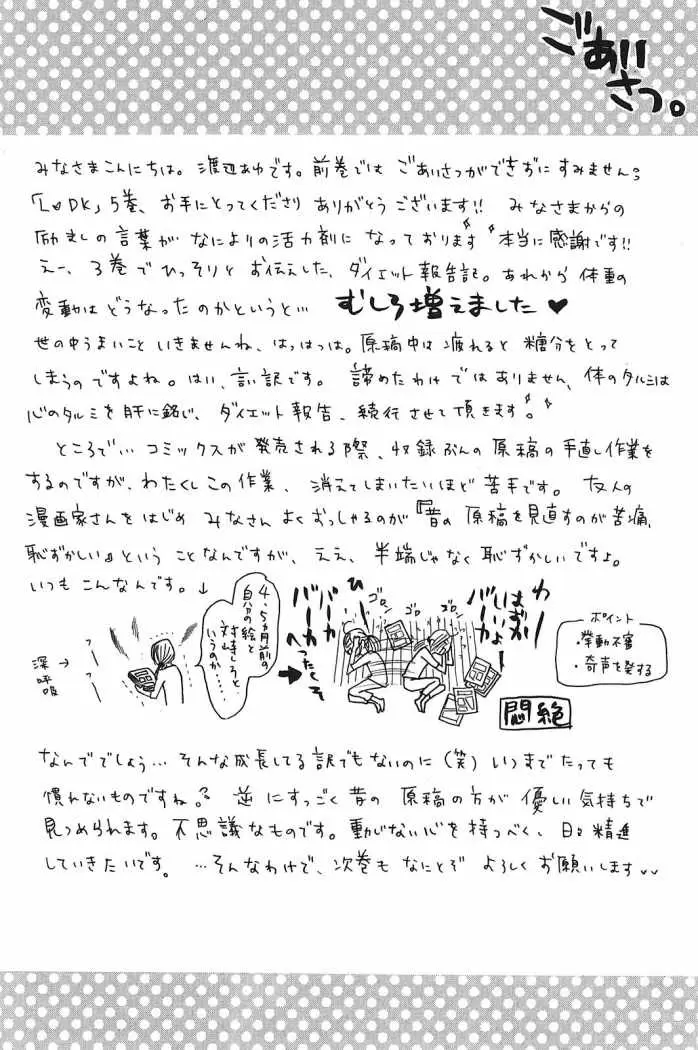 ごあいさつ。
みなさまこんにちは。渡辺あゆです。前巻では ごあいさつができずにすみません。
「L♥DK」5巻、お手にとってくださり ありがとう ございます!! みなさまからの
励ましの言葉が なによりの活力剤に なっております 本当に感謝です!!
えー、3巻でひっそりと お伝えした、ダイエット報告記。あれから 体重の
変動は どうなったのかというと… むしろ増えました♥
世の中うまいこと いきませんね、はっはっは。原稿中は 疲れると 糖分をとって
しまうのですよね。はい、言い訳です。 諦めたわけではありません、体のタルミは
心のタルミを肝に銘じ、ダイエット報告、続行させて頂きます。
ところで… コミックスが 発売される際、収録ぶんの 原稿の手直し作業を
するのですが、わたくしこの作業、消えてしまいたいほど 苦手です。 友人の
漫画家さんをはじめ みなさん よくおっしゃるのが『昔の 原稿を見直すのが苦痛、
恥ずかしい』という ことなんですが、ええ、半端じゃなく 恥ずかしいですよ。
いつも こんなんです。↓
深呼吸
→
4、5ヵ月前の
自分の絵と
対峙しろと
いうのか……
➡
わー
はずか
しいよー
バーカ
ゴロン
ゴロン
ひー
バーカ
バーカ
へったくそ
悶絶
ポイント
・挙動不審
・奇声を発する
なんででしょう… そんな成長してる訳でもないのに (笑) いつまでたっても
慣れないものですね。? 逆にすっごく昔の 原稿の方が 優しい気持ちで
見つめられます。不思議なものです。動じない心を持つべく、日々精進
していきたいです。 …そんなわけで、次巻も なにとぞ よろしく お願いします